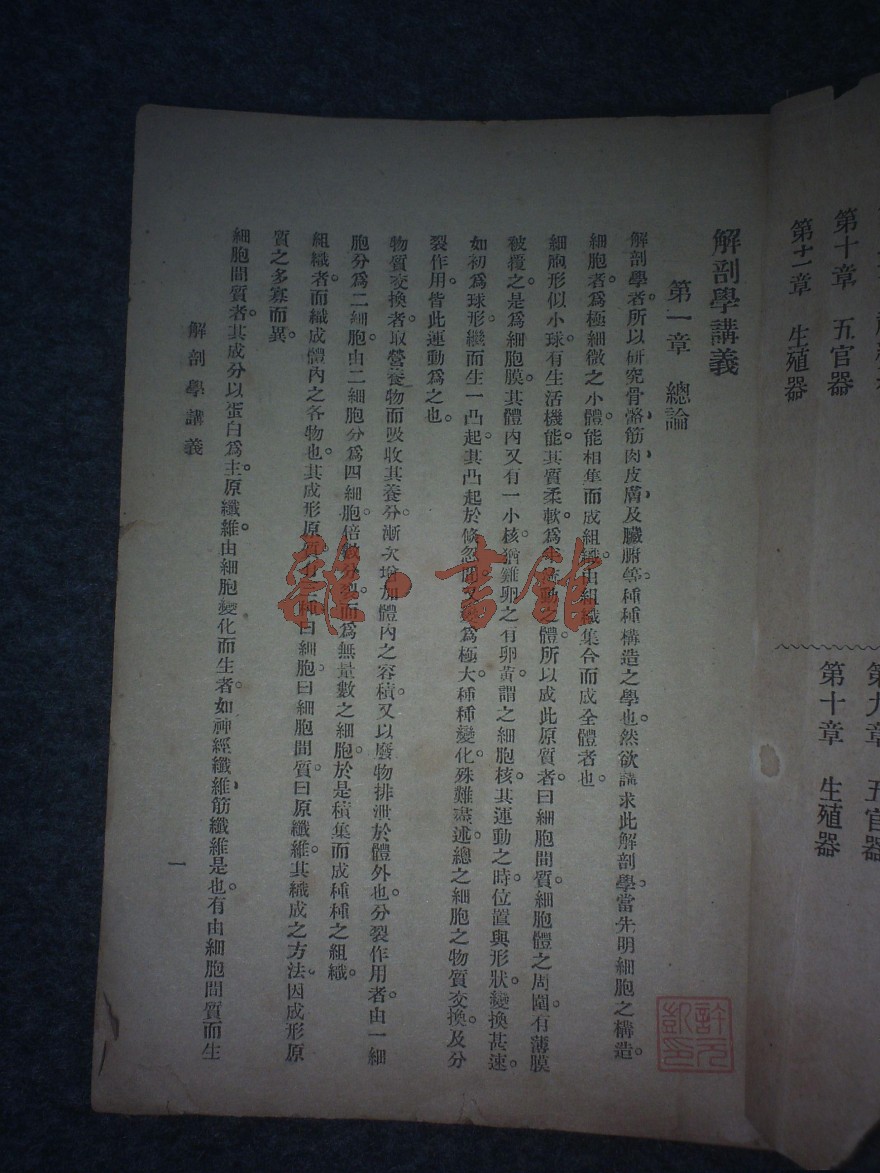 第十章　五官器
第十一章　生殖器
第九章　五官器
第十章　生殖器
解剖學講義
第一章　總論
解剖學者。所以研究骨骼、筋肉、皮膚、及臟腑等。種種構造之學也。然欲講求此解剖學。當先明細胞之構造。
細胞者。爲極細微之小體。能相集而成組織。由組織集合而成全體者也。
細胞形似小球。有生活機能。其質柔軟。爲生活動之體。所以成此原質者。曰細胞間質。細胞體之周圍。有薄膜
被覆之。是爲細胞膜。其體內又有一小核。猶雞卵之有卵黃。謂之細胞核。其運動之時。位置與形狀。變換甚速。
如初爲球形。繼而生一凸起。其凸起於倏忽間又變爲極大。種種變化。殊難盡述。總之細胞之物質交換。及分
裂作用。皆此運動爲之也。
物質交換者。取營養物而吸收其養分。漸次增加體內之容積。又以廢物排泄於體外也。分裂作用者。由一細
胞分爲二細胞。由二細胞分爲四細胞。倍數分裂。而爲無量數之細胞。於是積集而成種種之組織。
組織者。而織成體內之各物也。其成形原質分三種。曰細胞。曰細胞間質。曰原纖維。其織成之方法。因成形原
質之多寡而異。
細胞間質者。其成分以蛋白爲主。原纖維由細胞變化而生者。如神經纖維、筋纖維是也。有由細胞間質而生
解剖學講義
一
雜·書館